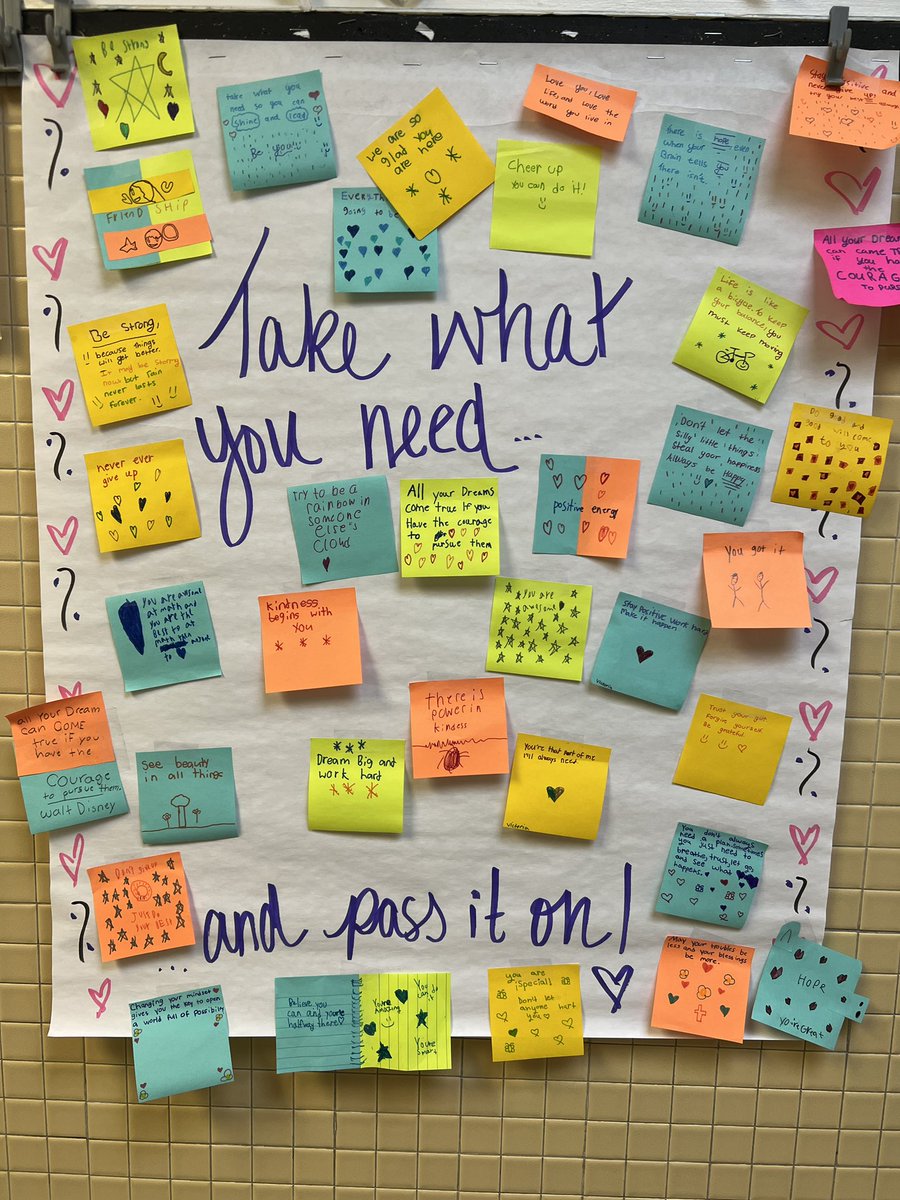 Be Strong
take what you
need so you can
shine and lead
Be you!!
we are so
glad you
are here
Love you, Love
Life, and Love the
world you live in
Stay Positive and
never give up!
Try your best
FriendShip
Everyth
going to be
Cheer up
you can do it!
there is hope even
when your
Brain tells you
there isn't.
All your Dream
can came T
if you ha
the
COURAG
TO PURS
Take what
you need...
Be Strong,
because things
will get better.
It may be stormy
now but rain
never lasts
forever.
Life is like
a bicycle. To keep
your balance, you
must keep moving
Don't let the
silly little things
steal your happiness
Always be Happy
Do good and
good will come
to you
never ever
give up
Try to be a
rainbow in
someone
else's
cloud
All your Dreams
come true if you
Have the courage
to pursue them
positive energy
You got it
You are awsome
at math and
you are the
Best to at
math
to
kindness
begins with
you
You are
awesome
Stay Positive Work hard
make it happen
Victoria
all Your Dream
can COME
true if you
have the
Courage
to pursue them.
walt Disney
See beauty
in all things
Dream Big and
work hard
there is
power in
kindness
You're that part of me
I'll always need.
Victoria
Trust your gut.
Forgive yourself.
Be grateful.
Don't give up
Just Do
your BEST
You don't always
need a plan. sometimes
you just need to
breathe, trust, let go,
and see what
happens.
...and pass it on!
Changing your mindset
gives you the key to open
a world full of possibility
Believe you
can and you're
halfway there
You're
Amazing
You can
do it!
You're
smart
you are
special!
Don't let
anyone hurt
you
May your troubles be
less and your blessings
be more.
HOPE
You're Great